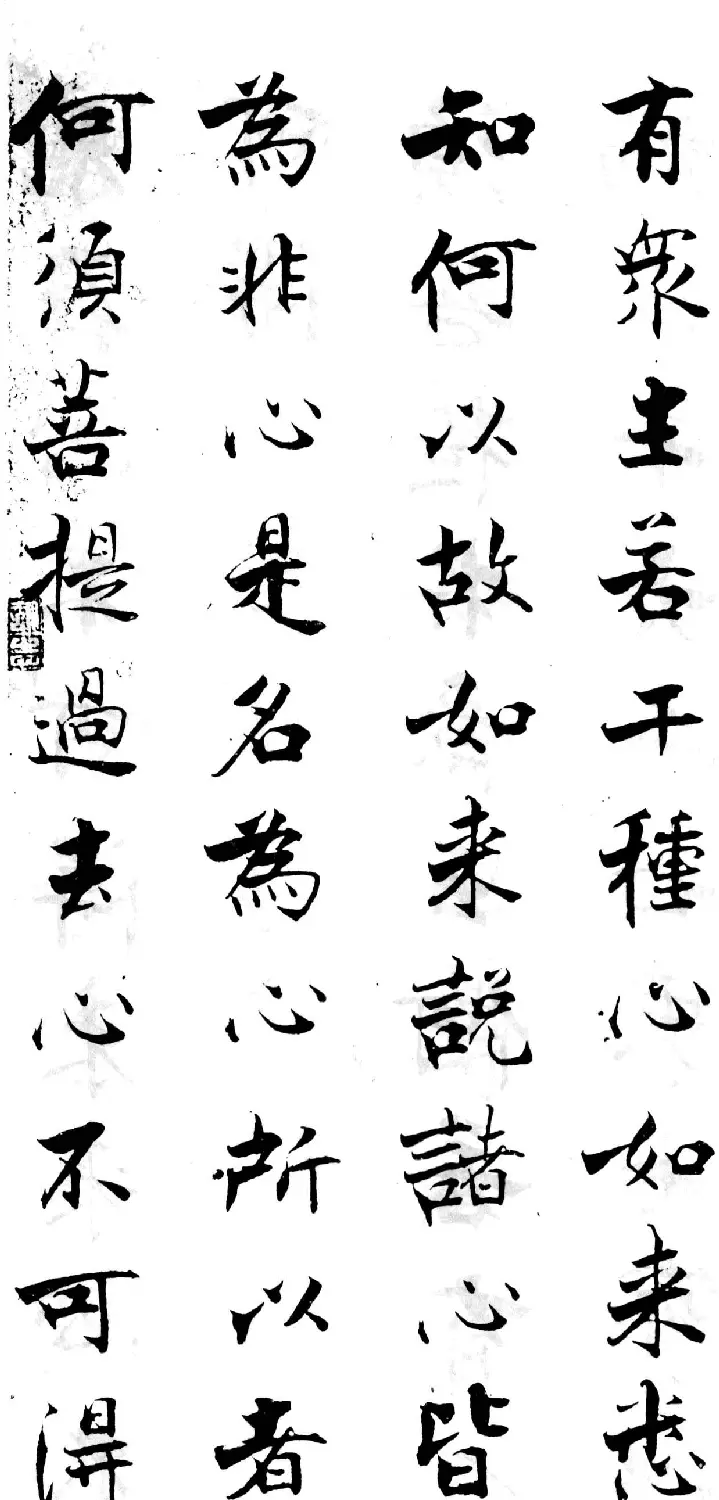 有眾生若干種心如来悉
知何以故如来説諸心皆
為非心是名為心所以者
何須菩提過去心不可得